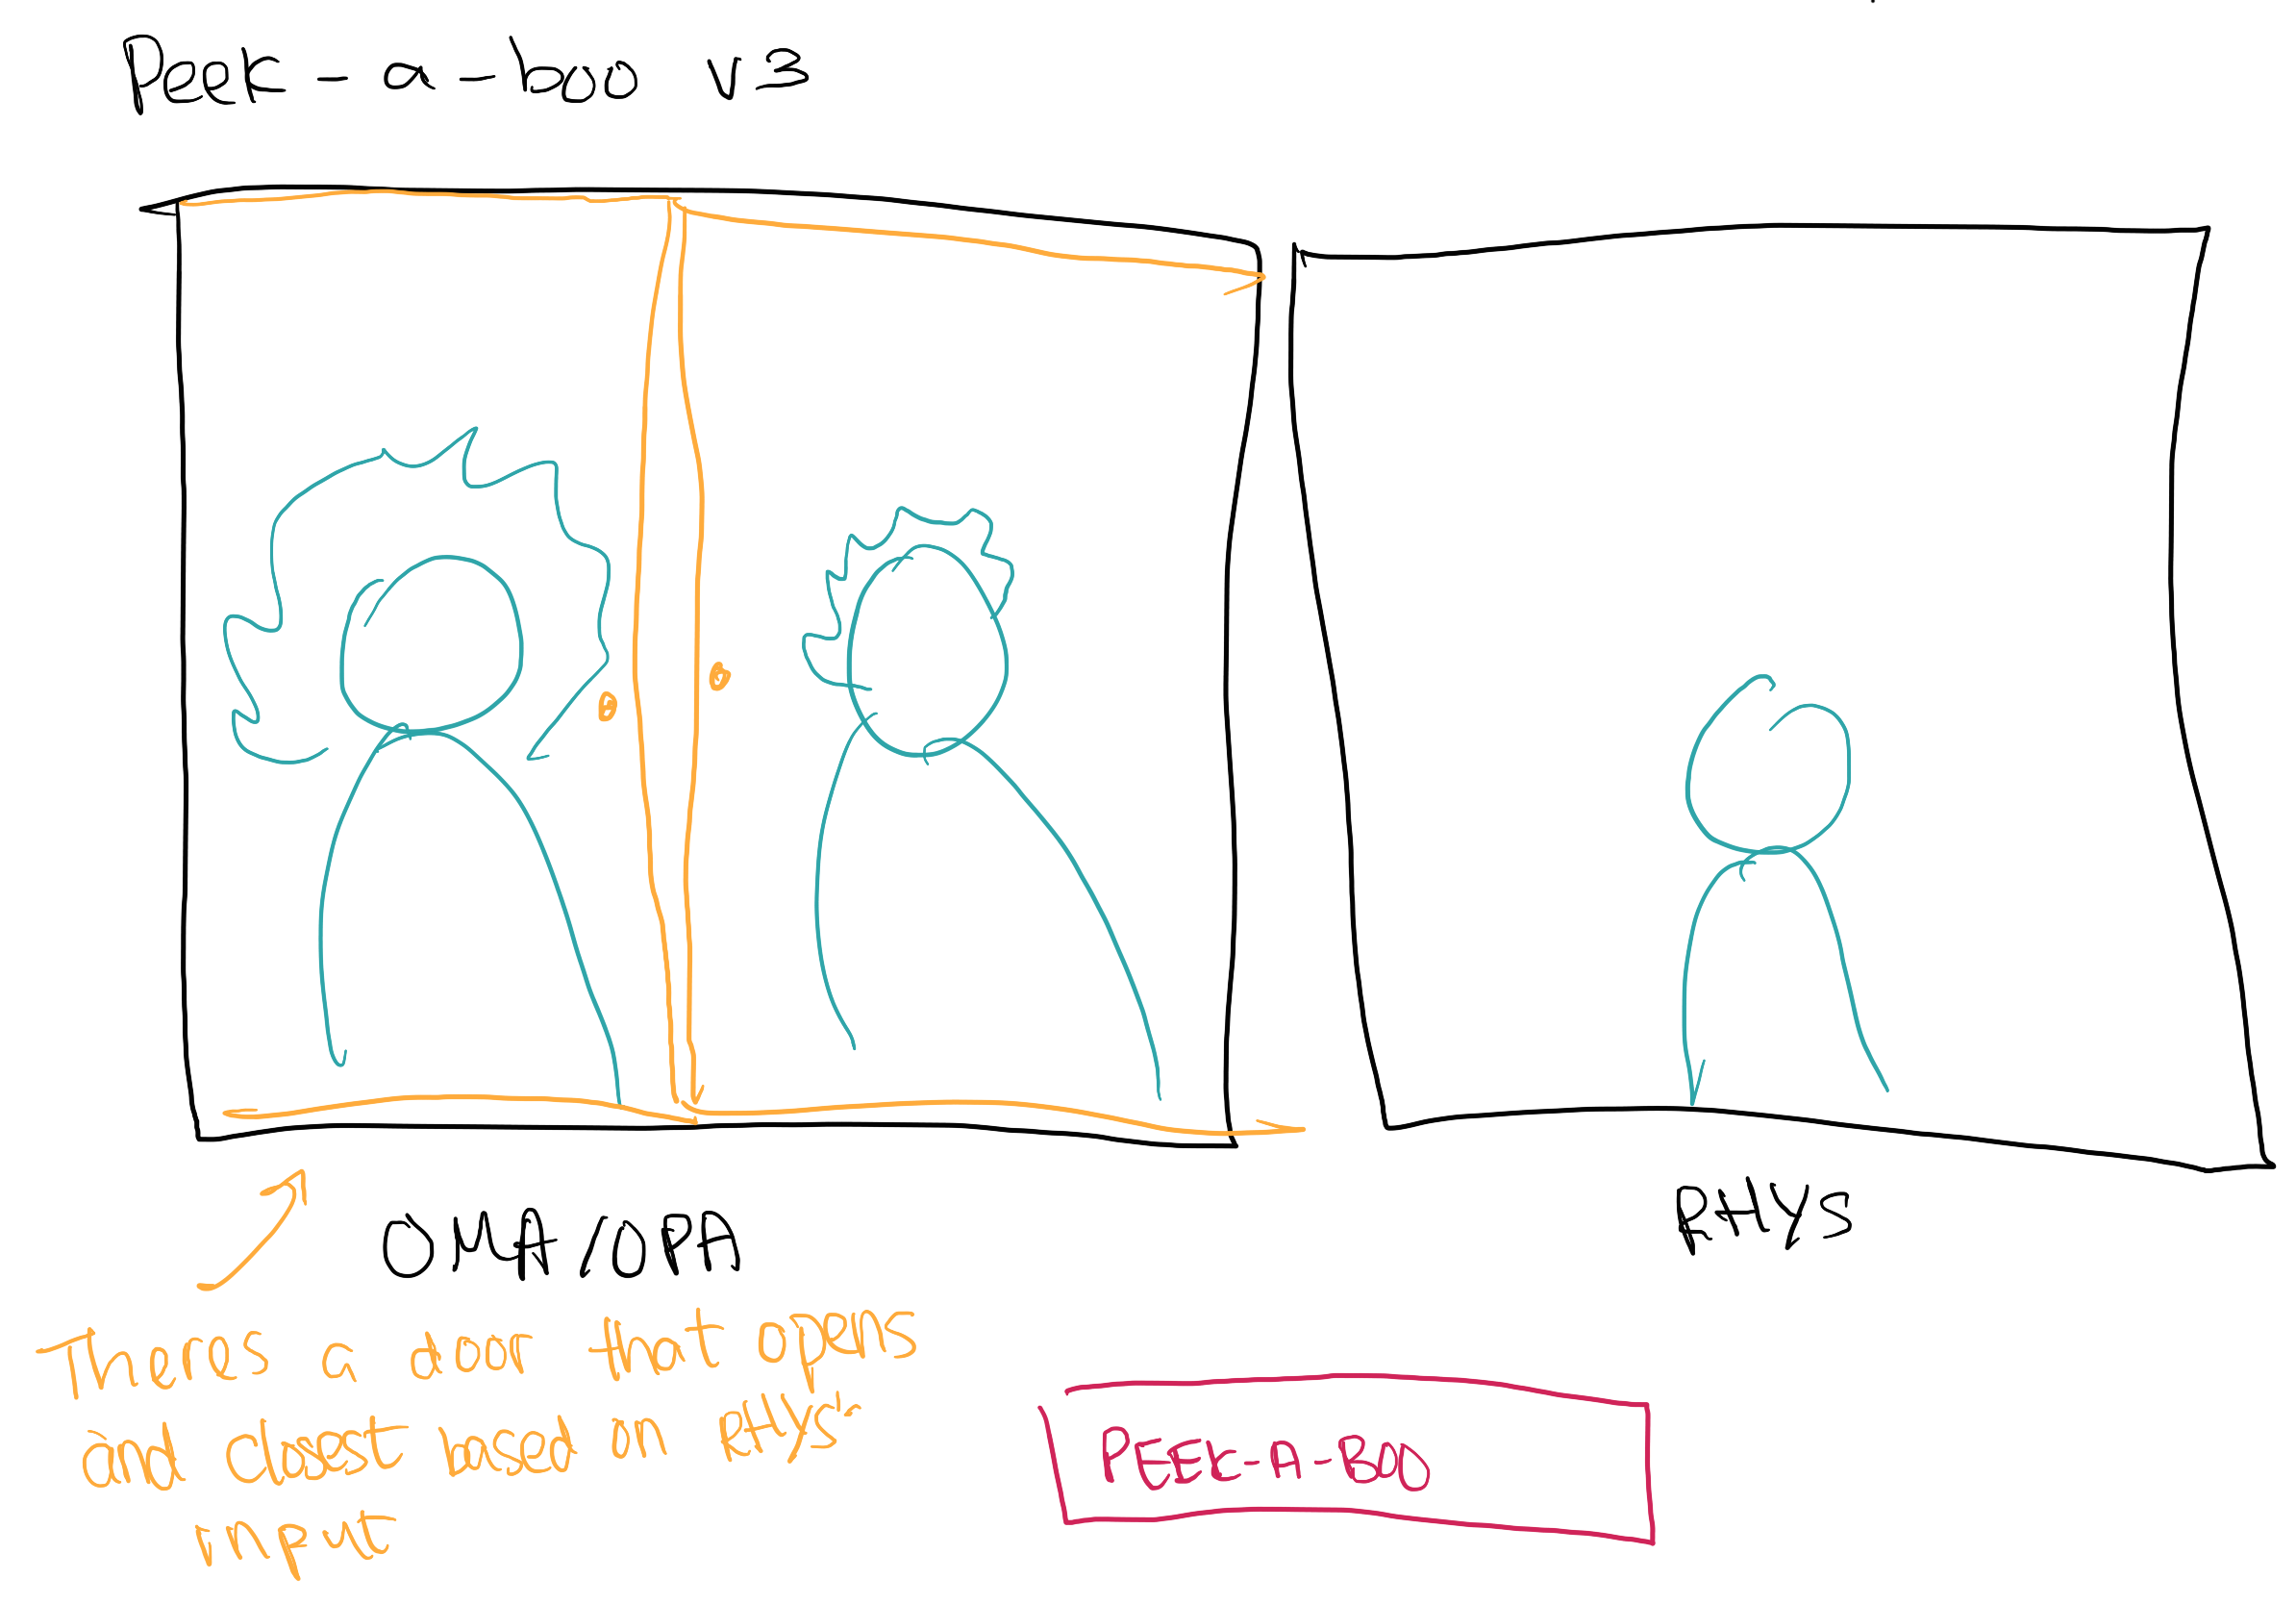 Peek-a-boo v3
OMA/OPA
RHYS
Theres a door that opens
and closest based on RHYS's
input
PEEK-A-BOO